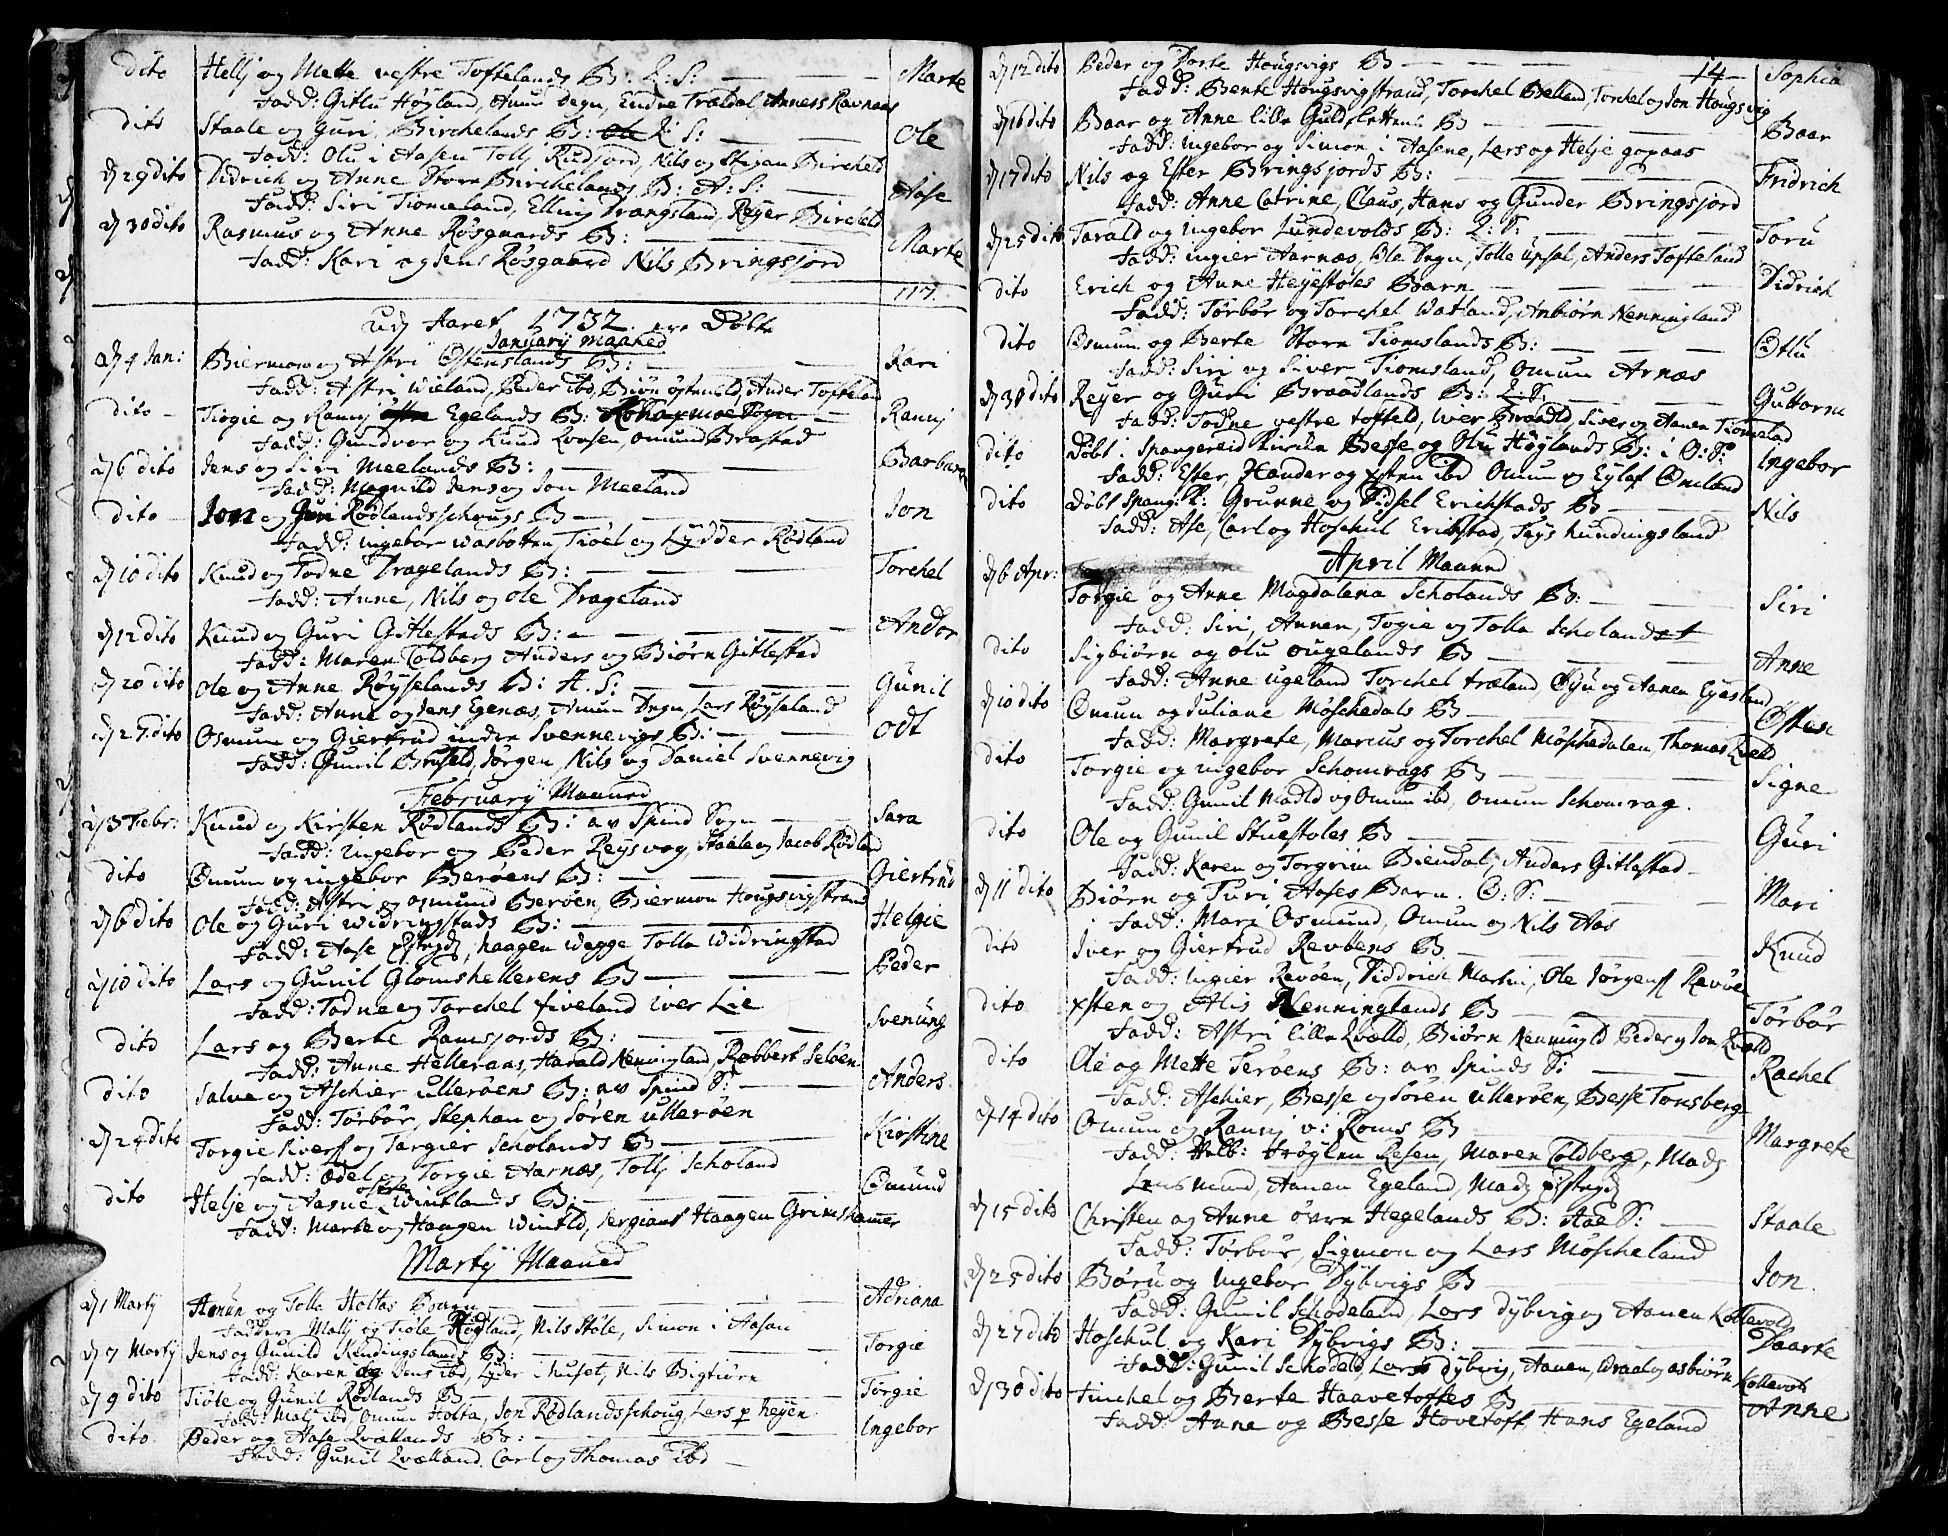 dito Hellj og Mette vestre Toftelands B: L: S: Marte
Fadd: Gitlu Høyland, Amun Degn, Endre Trældal, Anners Ravnaas
dito Staale og Guri Birchelands B: L: S: Ole
Fadd: Olu i Aasen Tollj Rudsiord, Nils og Stigan Bircheld
dj 29 dito Didrich og Anne Storn Birchelands B: A: S: Aase
Fadd: Siri Tiomeland, Elling Drangsland, Reyer Bircheld
dj 30 dito Rasmus og Anne Røsgaards B: Marte
Fadd: Kari og Jens Røsgaard Nils Bringsjord
117.
Udj Aaret 1732. ere Døbte
Januarij Maaned
dj 4 Jan: Biermon og Astri Østenslands B: Kari
Fadd: Astri Wieland, Peder ibd, Biørn Østensld, Ander Tofteland
dito Tiøgie og Rannj Egelands B: Rannj
Fadd: Gundvor og Knud Qvosen, Omund Brastad
dj 6 dito Jens og Siri Meelands B: Barbara
Fadd: Magnild Jens og Jon Meeland
dito Jon og Guri Rødlandsschougs B Jon
Fadd: Ingebor Wasbotten, Tiøl og Lydder Rødland
dj 10 dito Knud og Todne Dragelands B: Torchel
Fadd: Anne, Nils og Ole Drageland
dj 12 dito Knud og Guri Gitlestads B: Andor
Fadd: Maren Coldberg Anders og Biørn Gitlestad
dj 20 dito Ole og Anne Røyselands B: A. S: Gunil
Fadd: Anne og Jens Egenæs, Amun Degn, Lars Røyseland
dj 27 dito Osmun og Giertrud indre Svennevigs B: Odt
Fadd: Gunil Brufeld, Jørgen, Nils og Daniel Svennevig
February Maaned
dj 3 Febr: Knud og Kirsten Rødlands B: av Spind Sogn Sara
Fadd: Ingebor og Peder Reysvog, Staale og Jacob Rødland
dito Omun og Ingebor Berøens B: Giertrud
Fadd: Astri og Osmund Berøen, Biermon Hougsvigstrand
dj 6 dito Ole og Guri Widringstads B: Helgie
Fadd: Aase, Haagen Wegge Tolla Widringstad
dj 10 dito Lars og Gunil Glomshellerens B Peder
Fadd: Todne og Torchel Fiveland Iver Lie
dito Lars og Berte Ramsjords B: Svenung
Fadd: Anne Helleraas, Harald Nennigland, Robbert Seløen
dito Salve og Aschier Ullerøens B: av Spind S: Anders
Fadd: Tørbor, Stephan og Søren Ullerøen
dj 24 dito Torgie Iverss og Targier Scholands B Kirstine
Fadd: Ædel og Torgie Aarnæs, Tollj Scholand
dito Helje og Aasne østre Wintlands B: Omund
Fadd: Marte og Haagen Wintld, Haagen Grimshammer
Martij Maaned
dj 1 Martj Amun og Tolla Holtas Barn Adriana
Faddere Mallj og Tiøle Rødland, Nils Støle, Simon i Aasen
dj 7 Martj Jens og Gunild Kindingslands B: Torgie
Fadd: Karen og Jens ibd, Lyder i Huset, Nils Bigtiørn
dj 9 dito Tiøle og Gunil Rødlands B Tørgie
Fadd: Mali ibd, Omun Holta, Jon Rødlandsschoug, Lars p Heyen
dito Peder og Aase Qvællands B: Ingebor
Fadd: Gunil Qvælland, Carl og Thomas ibd
14
dj 12 dito Peder og Dorte Hougsvigs B Sophia
Fadd: Berte Hougsvigstrand, Torchel Belland, Torchel og Jon Hougsvig
dj 16 dito Baar og Anne lille Guldslettens B Baar
Fadd: Ingebor og Simon i Aasene, Lars og Helje gopaas
dj 17 dito Nils og Ester Bringsjords B: Fridrich
Fadd: Anne Catrine, Claus, Hans og Gunder Bringsjord
dj 25 dito Tarald og Ingebor Lundevolds B: L: S: Toru
Fadd: Ingier Aarnæs, Ola Degn, Tolle Upsal, Anders Tofteland
dito Erich og Anne Heyestøles Barn Didrich
Fadd: Tørbor og Torchel Watland, Anbiørn Nenningland
dito Osmun og Berte Storn Tiomslands B: Otlu
Fadd: Siri og Siver Tiomsland, Omun Arnæs
dj 30 dito Reyer og Guri Braadlands B: L: S: Guttorm
Fadd: Todne vestre Tofteld, Iver Braadld, Siver og Aanen Tiomelad
dito Døbt i Spangereid Kirke Besse og Olu Høylands B: i O: S: Ingebor
Fadd: Ester, Hander og Xsten ibd Omun og Eylef Omland
dito Døbt Spang: K: Grunne og Sidsel Erichstads B Nils
Fadd: Ase, Carl og Hoschul Erichstad, Tøys Hundingsland
April Maaned
dj 6 Apr: Torgie og Anne Magdalena Scholands B: Siri
Fadd: Siri, Annen, Togie og Tolla Scholand
dito Sigbiørn og Olu Ougelands B Anne
Fadd: Anne Ugeland Torchel Træland, Øyu og Aanen Eyesland
dj 10 dito Omun og Juliane Møschedals B Østen
Fadd: Margrete, Marcus og Torchel Møschedalen, Thomas Qveld
dito Torgie og Ingebor Schomrags B Signe
Fadd: Gunil Madld og Omun ibd, Omun Schomrag.
dito Ole og Gunil Stuestøles B Guri
Fadd: Karen og Torgrim Biendal, Anders Gitlestad
dj 11 dito Biørn og Turi Aases Barn. O: S: Mari
Fadd: Mari Osmund, Omun og Nils Aas
dito Iver og Giertrud Revøens B Knud
Fadd: Ingier Revøen, Diddrich Martin, Ole Jørgenss Revøen
dito Xsten og Alis Nenninglands B Tørbor
Fadd: Astri lille Qvælld, Biørn Nenningld Peder og Jon Qvælld
dito Ole og Mette Ferøens B: av Spinds S: Rachel
Fadd: Aschier, Besse og Søren Ullerøen, Besse Tonsberg
dj 14 dito Omun og Rannj v: Roms B Margrete
Fadd: Velb: Frøylen Resen, Maren Coldberg, Mads
Lensmand, Aanen Egeland, Mads
dj 15 dito Christen og Anne øvre Hegelands B: Hae S: Staale
Fadd: Tørbor, Sigmon og Lars Møscheland
dj 25 dito Børu og Ingebor Dybvigs B Jon.
Fadd: Gunil Schodeland, Lars Dybvig og Aanen Kollevold
dj 27 dito Hoschul og Kari Dybvigs B: Daarte
Fadd: Gunil Schodeld, Lars Dybvig, Aanen, Wraal og Asbiørn Kollevold
dj 30 dito Tinchel og Berte Haavetoftes B Anne
Fadd: Anne og Besse Hovetoft, Hans Egeland